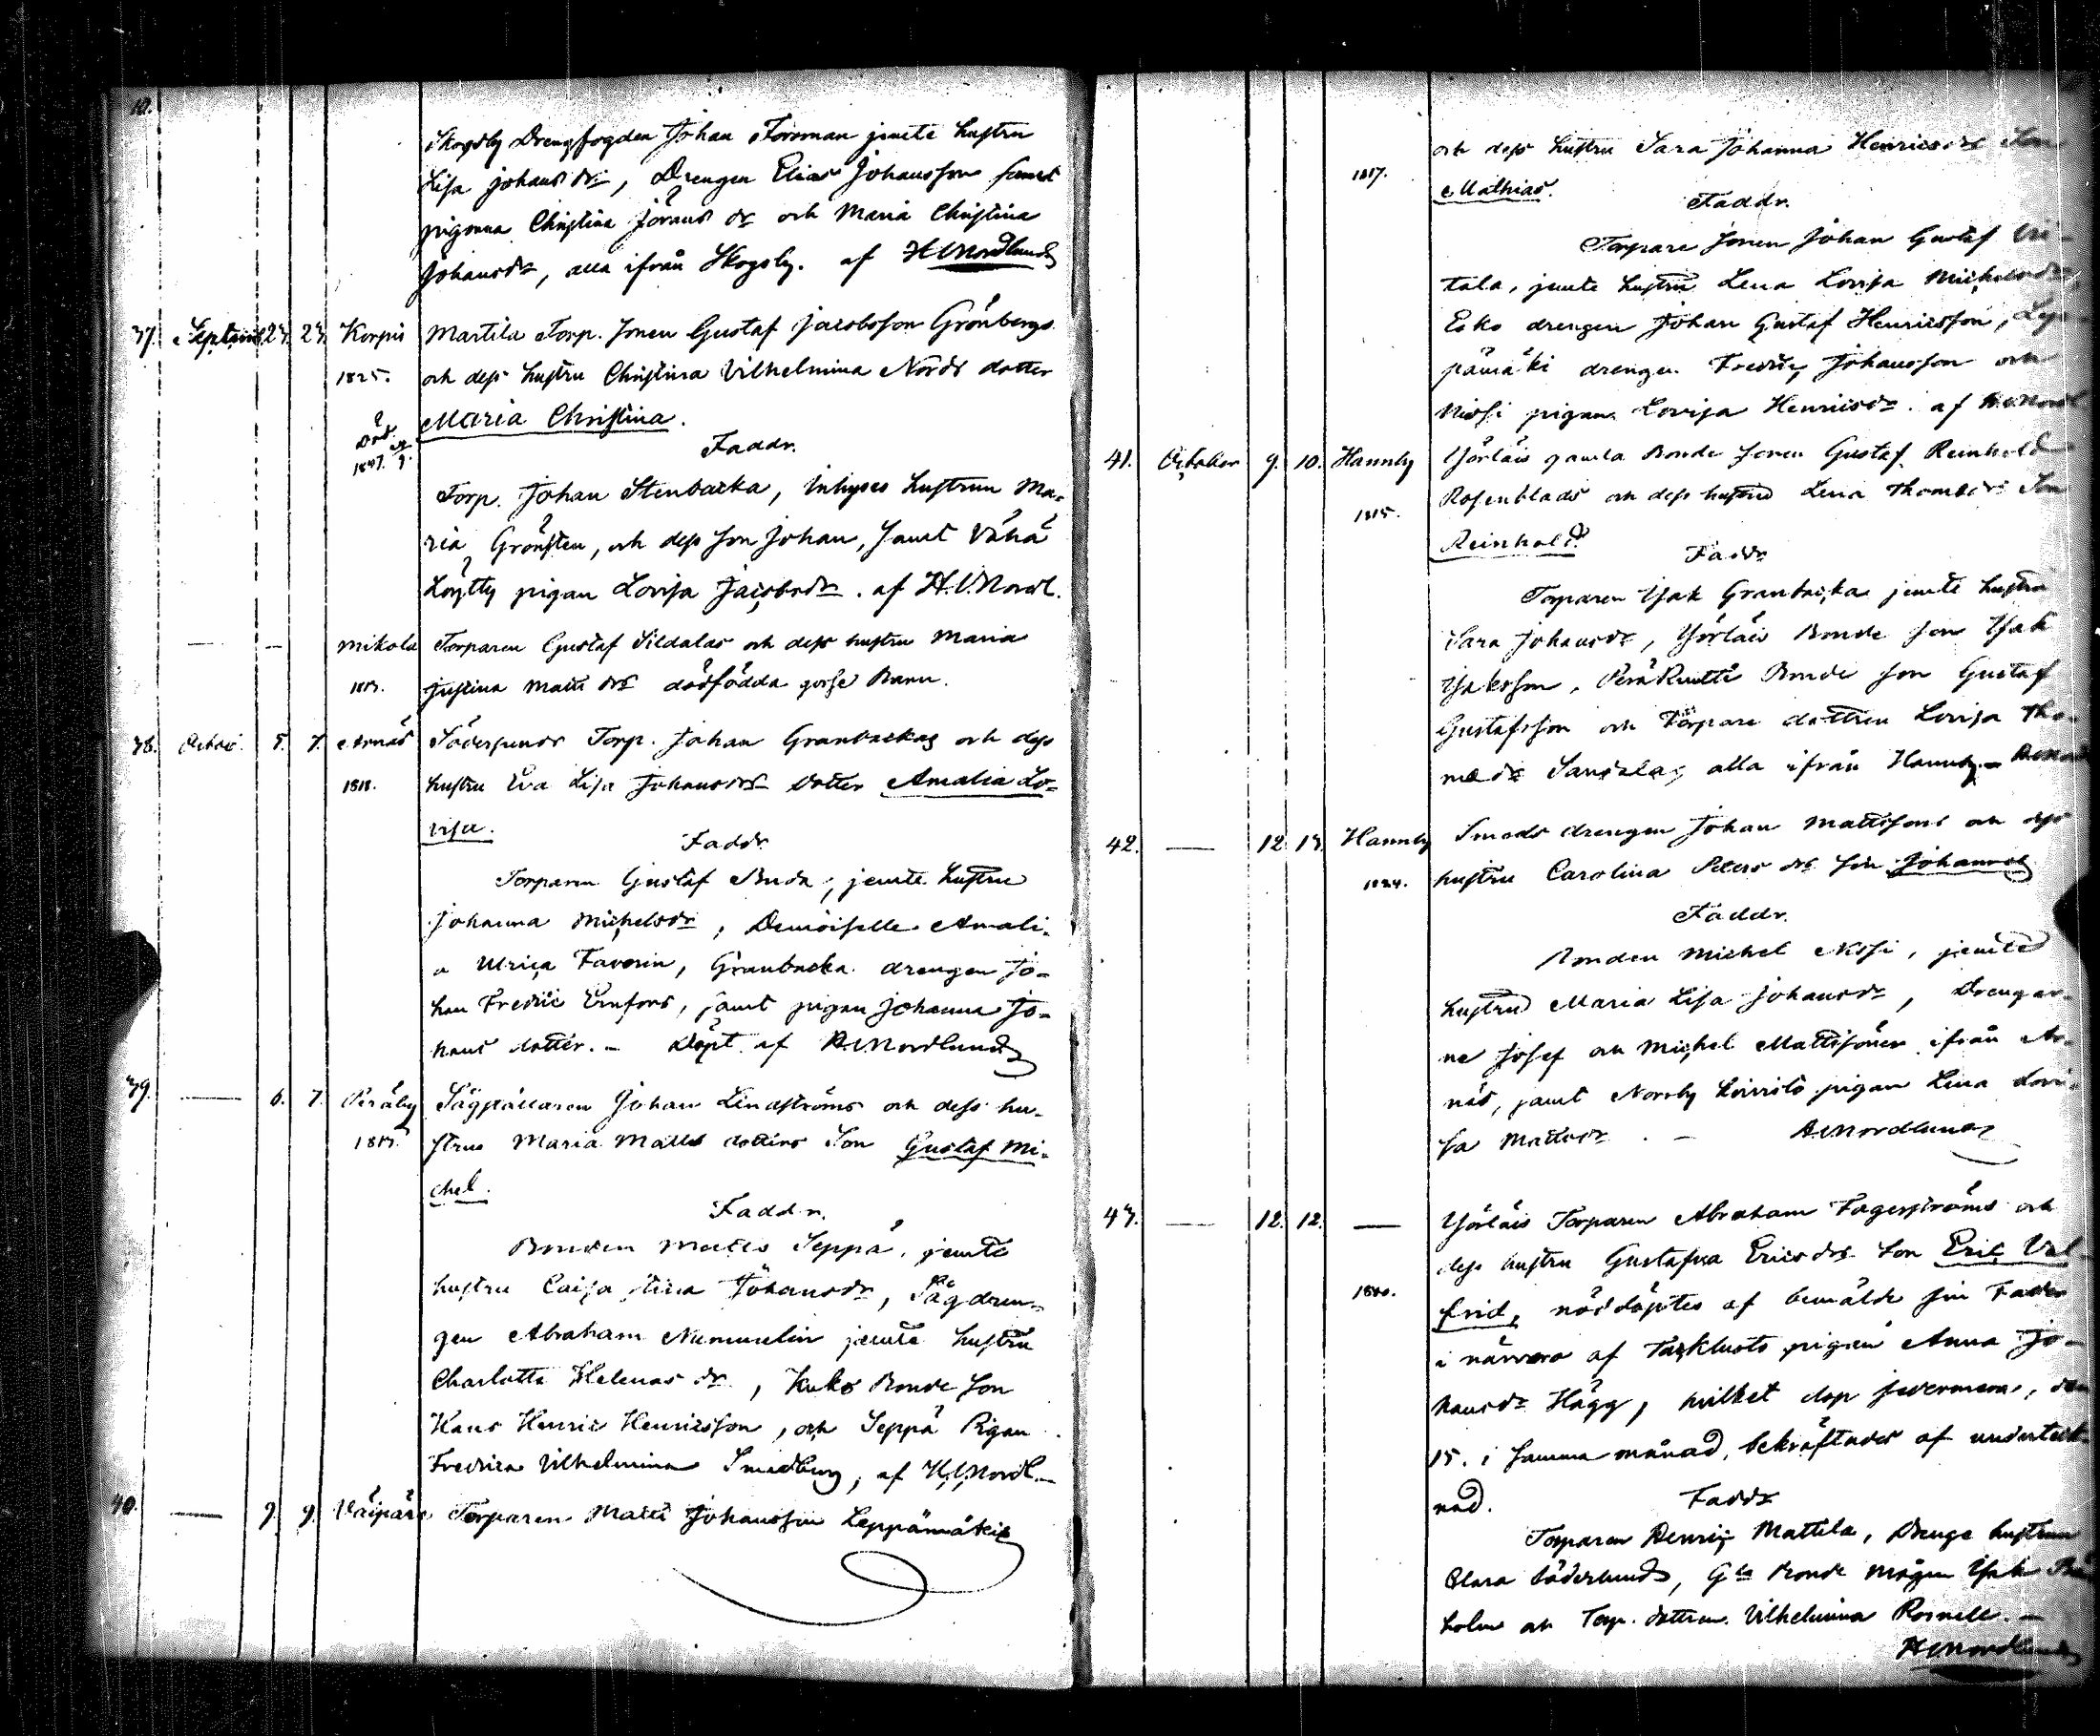 10.
Skogsby Drengfogden Johan Forsman jemte hustru
Lisa Johansdr, Drengen Elias Johansson samt
pigorna Christina Jöransdr och Maria Christina
Johansdr, alla ifrån Skogsby. af HVNordlund
37. Septemb 23. 23. Korpis Martila Torp. Sonen Gustaf Jacobsson Grönbergs
1825. och dess hustru Christina Vilhelmina Nords dotter
Maria Christina.
Död 1847.
Faddr.
Torp. Johan Stenbacka, Inhyses hustrun Ma-
ria Grönsten, och dess son Johan, samt Vähä
Löytty pigan Lovisa Jacobsdr. af H.V.Nordl.
— — Mikola Torparen Gustaf Sildalas och dess hustru Maria
1813. Justina Matts drs dödfödda gosse Barn.
38. Octob. 5. 7. Arnäs Söderpends Torp. Johan Granbackas och dess
1818. hustru Eva Lisa Johansdrs dotter Amalia Lo-
visa.
Faddr
Torparen Gustaf Buda, jemte hustru
Johanna Michelsdr, Demoiselle Amali-
a Ulrica Favorin, Granbacka drengen Jo-
han Fredric Ernfors, samt pigan Johanna Jo-
hans dotter. – döpt af HVNordlund
39. — 6. 7. Peräby Sågställaren Johan Lindströms och dess hu-
1813. strus Maria Matts dotters Son Gustaf Mi-
chel.
Faddr.
Bonden Matts Seppä, jemte
hustru Caisa Stina Johansdr, Sågdren-
gen Abraham Nummelin jemte hustru
Charlotta Helenas dr, Kuko Bonde Son
Hans Henric Henricsson, och Seppä Pigan
Fredrica Vilhelmina Smedberg, af H.V.Nordl.
40. — 9. 9. Väipärs Torparen Matts Johansson Leppämäkis
och dess hustru Sara Johanna Henricsdrs Son
1817. Mathias.
Faddr.
Torpare Sonen Johan Gustaf Uu-
tala, jemte hustru Lena Lovisa Michelsdr,
Esko drengen Johan Gustaf Henricsson, Lep-
pämäki drengen Fredric Johansson och
Nissi pigan Lovisa Henricsdr. af HVNordl
41. October 9. 10. Hannby Yörläis gamla Bonde Sonen Gustaf Reinhold
1815. Rosenblads och dess hustru Lena Thomsdrs Son
Reinhold.
Faddr
Torparen Isak Granbacka jemte hustru
Sara Johansdr, Yörläis Bonde Son Isak
Isaksson, PeräRuutti Bonde Son Gustaf
Gustafsson och Torpare dottren Lovisa Tho-
masdr Sandala, alla ifrån Hannby. – HVNord
42. — 12. 13. Hannby Smeds drengen Johan Mattssons och dess
1824. hustru Carolina Peters drs Son Johannes
Faddr.
Bonden Michel Nissi, jemte
hustru Maria Lisa Johansdr, Drengar-
ne Josef och Michel Mattssöner ifrån Ar-
näs, samt Norrby pigan Lena Lovi-
sa Mattsdr. – HVNordlund
43. — 12. 12. — Yörläis Torparen Abraham Fagerströms och
dess hustru Gustafva Ericsdrs Son Eric Val-
1800. frid, nöddöptes af bemälde sin Fader
i närvaro af pigan Anna Jo-
hansdr Hägg, hvilket dop sedermera, den
15. i samma månad, bekräftades af underteck-
nad.
Faddr
Torparen Henric Mattila, Drengs hustrun
Clara Söderlund, Gla Bonde mågen Isak
holm och Torp. dottren Vilhelmina Rosnell. –
HVNordlund